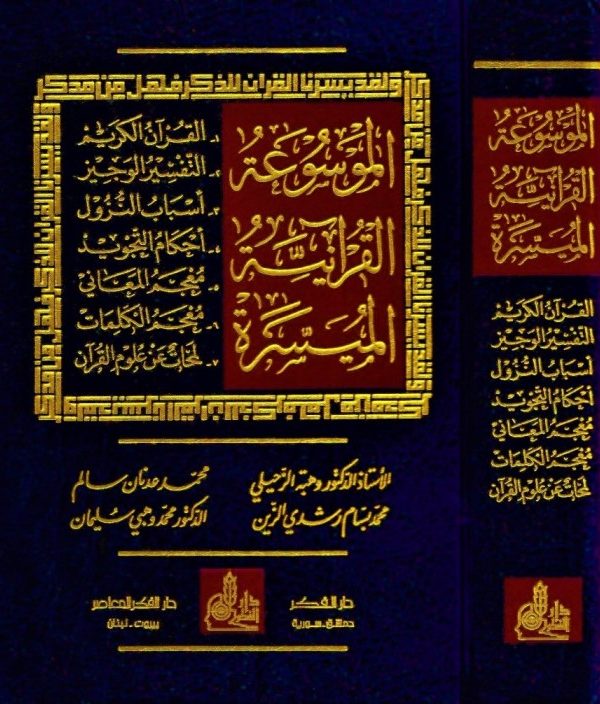 ولقد يسرنا القرآن للذكر فهل من مدكر
الموسوعة
القرآنية
الميسرة
١- القرآن الكريم
٢- التفسير الوجيز
٣- أسباب النزول
٤- أحكام التجويد
٥- معجم المعاني
٦- معجم الكلمات
٧- لمحات عن علوم القرآن
الأستاذ الدكتور وهبة الزحيلي
محمد عدنان سالم
محمد بسام رشدي الزين
الدكتور محمد وهبي سليمان
دار الفكر
دمشق - سورية
دار الفكر
دار الفكر المعاصر
بيروت - لبنان
الموسوعة
القرآنية
الميسرة
القرآن الكريم
التفسير الوجيز
أسباب النزول
أحكام التجويد
معجم المعاني
معجم الكلمات
لمحات عن علوم القرآن
دار الفكر